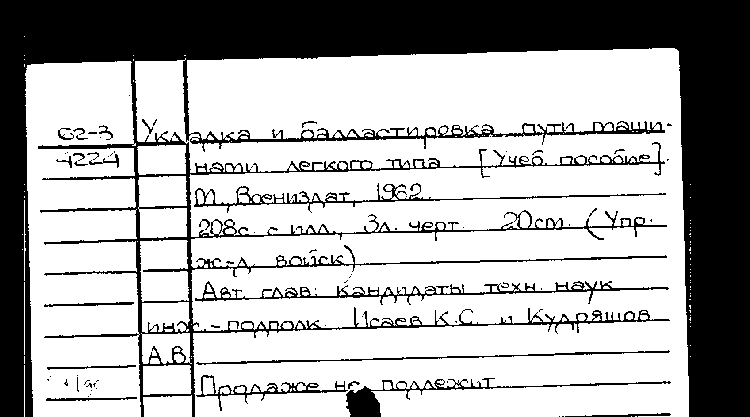 62-3 Укладка и балластировка пути маши-
4224 нами легкого типа. [Учеб. пособие].
М., Воениздат, 1962.
208с. с илл., 3л. черт. 20см. (Упр.
ж-д. войск)
Авт. глав: кандидаты техн. наук
инж.-подполк. Исаев К.С. и Кудряшов
А.В.
Продаже не подлежит